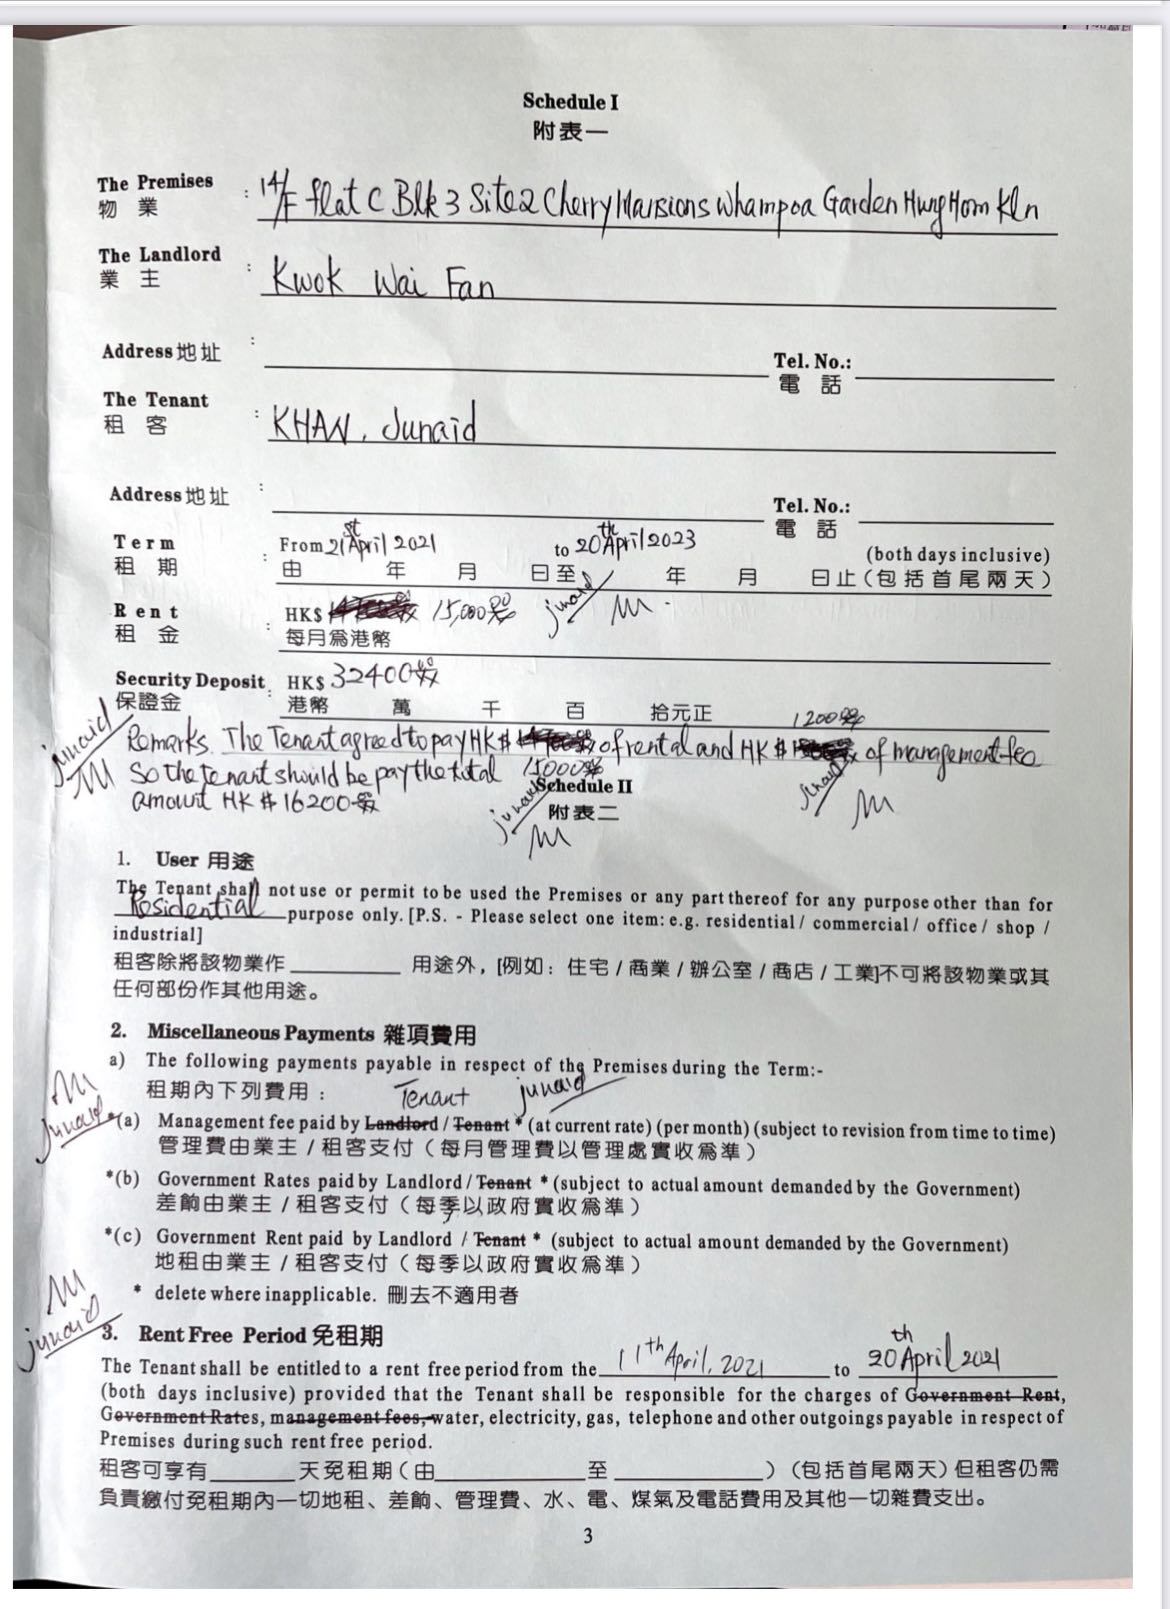 Schedule I
附表一
The Premises : 14/F flat C Blk 3 Site 2 Cherry Mansions Whampoa Garden Hung Hom Kln
物業
The Landlord : Kwok Wai Fan
業主
Address 地址 : Tel. No.:
電話
The Tenant : KHAN, Junaid
租客
Address 地址 : Tel. No.:
電話
Term : From 21st April 2021 to 20th April 2023 (both days inclusive)
租期 由 年 月 日至 年 月 日止(包括首尾兩天)
Rent : HK$ 15,000.00 junaid
租金 每月為港幣
Security Deposit : HK$ 32400.00
保證金 港幣 萬 千 百 拾元正
junaid
1200.00
Remarks. The Tenant agreed to pay HK$ of rental and HK$ of management fee
So the tenant should be pay the total 15000.00
amount HK$ 16200.00
junaid
junaid
Schedule II
附表二
1. User 用途
The Tenant shall not use or permit to be used the Premises or any part thereof for any purpose other than for
Residential purpose only. [P.S. - Please select one item: e.g. residential / commercial / office / shop /
industrial]
租客除將該物業作________用途外，[例如：住宅/商業/辦公室/商店/工業]不可將該物業或其
任何部份作其他用途。
2. Miscellaneous Payments 雜項費用
a) The following payments payable in respect of the Premises during the Term:-
租期內下列費用：
Tenant junaid
junaid
*(a) Management fee paid by Landlord / Tenant * (at current rate) (per month) (subject to revision from time to time)
管理費由業主/租客支付（每月管理費以管理處實收為準）
*(b) Government Rates paid by Landlord / Tenant * (subject to actual amount demanded by the Government)
差餉由業主/租客支付（每季以政府實收為準）
*(c) Government Rent paid by Landlord / Tenant * (subject to actual amount demanded by the Government)
地租由業主/租客支付（每季以政府實收為準）
* delete where inapplicable. 刪去不適用者
junaid
3. Rent Free Period 免租期
The Tenant shall be entitled to a rent free period from the 11th April, 2021 to 20th April 2021
(both days inclusive) provided that the Tenant shall be responsible for the charges of Government Rent,
Government Rates, management fees, water, electricity, gas, telephone and other outgoings payable in respect of
Premises during such rent free period.
租客可享有______天免租期（由__________至__________）（包括首尾兩天）但租客仍需
負責繳付免租期內一切地租、差餉、管理費、水、電、煤氣及電話費用及其他一切雜費支出。
3